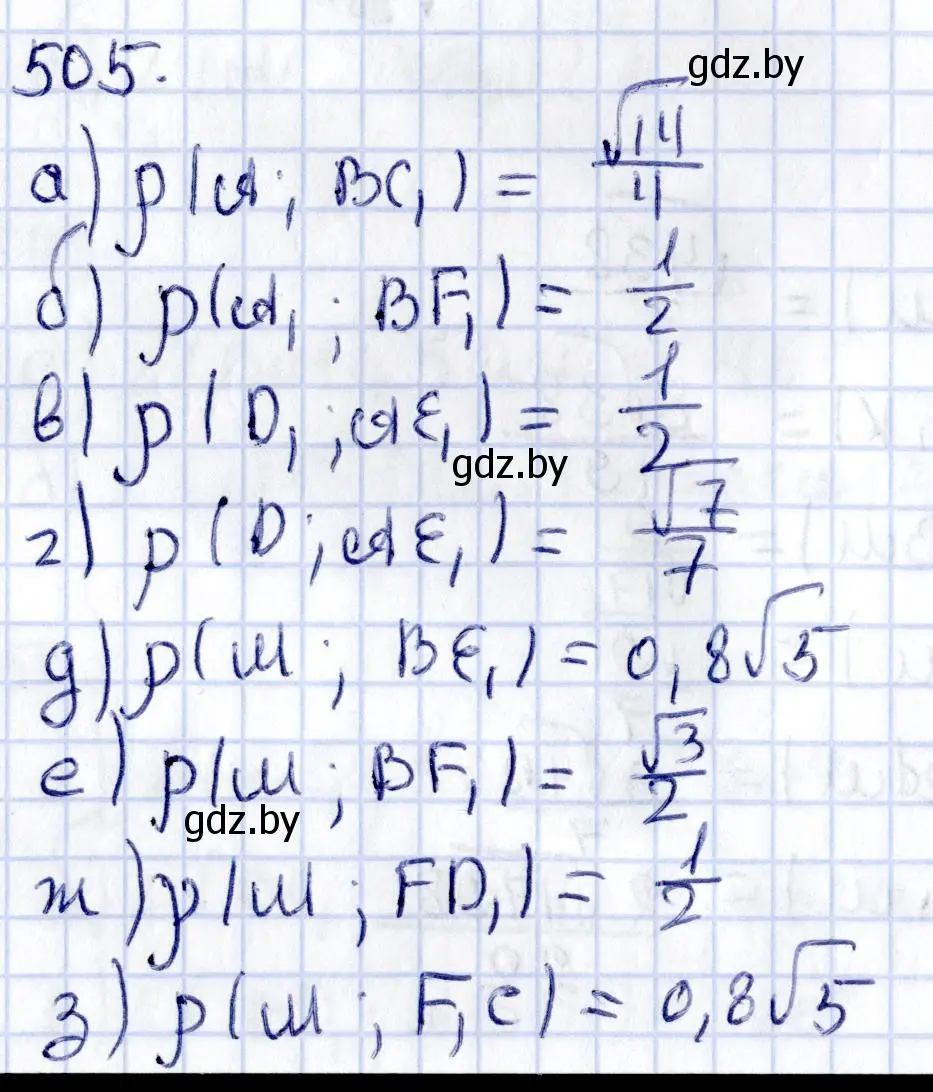 505.
gdz.by
а) ρ(A; BC₁) = √14/4
б) ρ(A₁; BF₁) = 1/2
в) ρ(D₁; AE₁) = 1/2
gdz.by
г) ρ(D; AE₁) = √7/7
д) ρ(M; BE₁) = 0,8√5
е) ρ(M; BF₁) = √3/2
gdz.by
ж) ρ(M; FD₁) = 1/2
з) ρ(M; F₁C) = 0,8√5